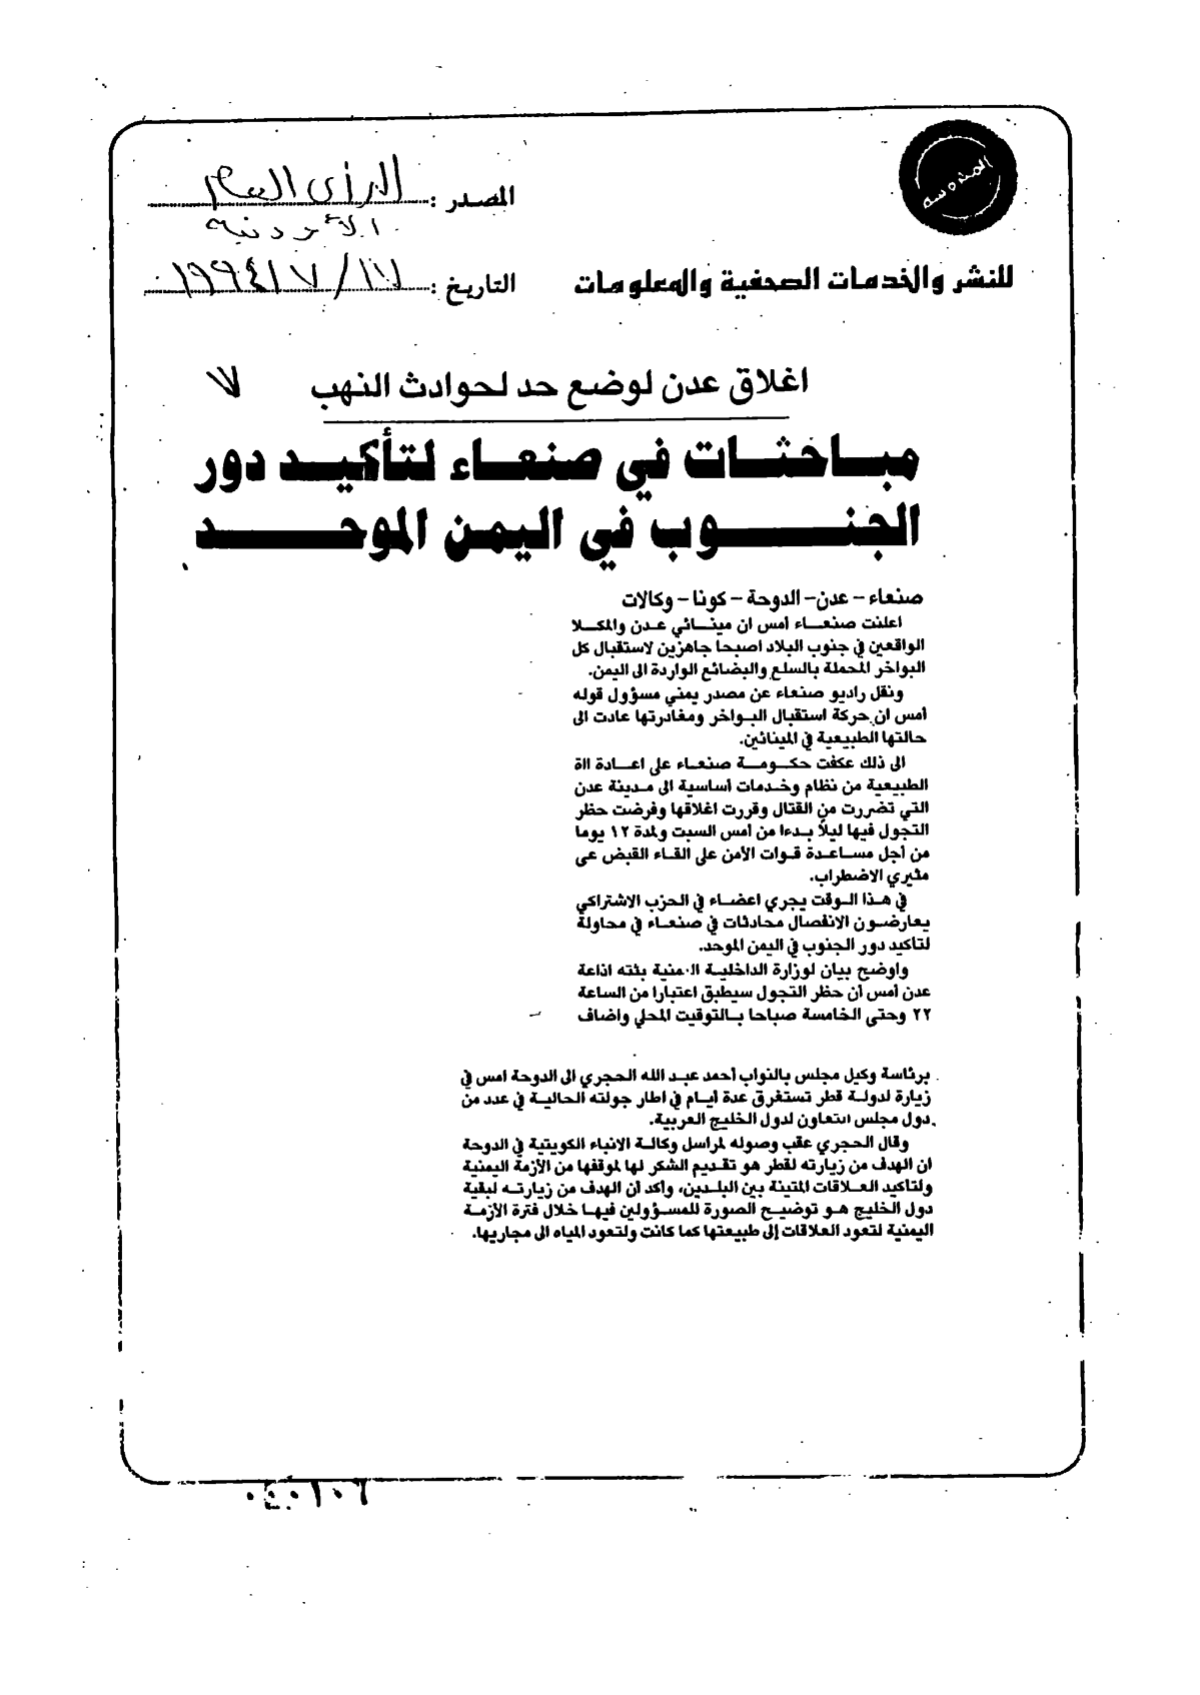 المحروسة
المصدر : الرأى العام
الأردنية
للنشر والخدمات الصحفية والمعلومات
التاريخ : ١٩٩٤/٧/١٧
اغلاق عدن لوضع حد لحوادث النهب
١٧
مباحثات في صنعاء لتأكيد دور
الجنوب في اليمن الموحد
صنعاء – عدن– الدوحة – كونا – وكالات
اعلنت صنعاء أمس ان مينائي عدن والمكلا
الواقعين في جنوب البلاد اصبحا جاهزين لاستقبال كل
البواخر المحملة بالسلع والبضائع الواردة الى اليمن.
ونقل راديو صنعاء عن مصدر يمني مسؤول قوله
أمس ان حركة استقبال البواخر ومغادرتها عادت الى
حالتها الطبيعية في المينائين.
الى ذلك عكفت حكومة صنعاء على اعادة الاة
الطبيعية من نظام وخدمات أساسية الى مدينة عدن
التي تضررت من القتال وقررت اغلاقها وفرضت حظر
التجول فيها ليلاً بدءا من أمس السبت ولمدة ١٢ يوما
من أجل مساعدة قوات الأمن على القاء القبض عى
مثيري الاضطراب.
في هذا الوقت يجري اعضاء في الحزب الاشتراكي
يعارضون الانفصال محادثات في صنعاء في محاولة
لتاكيد دور الجنوب في اليمن الموحد.
واوضح بيان لوزارة الداخلية اليمنية بثته اذاعة
عدن أمس أن حظر التجول سيطبق اعتبارا من الساعة
٢٢ وحتى الخامسة صباحا بالتوقيت المحلي واضاف
برئاسة وكيل مجلس بالنواب أحمد عبد الله الحجري الى الدوحة امس في
زيارة لدولة قطر تستغرق عدة أيام في اطار جولته الحالية في عدد من
دول مجلس التعاون لدول الخليج العربية.
وقال الحجري عقب وصوله لمراسل وكالة الانباء الكويتية في الدوحة
ان الهدف من زيارته لقطر هو تقديم الشكر لها لموقفها من الأزمة اليمنية
ولتاكيد العلاقات المتينة بين البلدين، وأكد أن الهدف من زيارته لبقية
دول الخليج هو توضيح الصورة للمسؤولين فيها خلال فترة الأزمة
اليمنية لتعود العلاقات إلى طبيعتها كما كانت ولتعود المياه الى مجاريها.